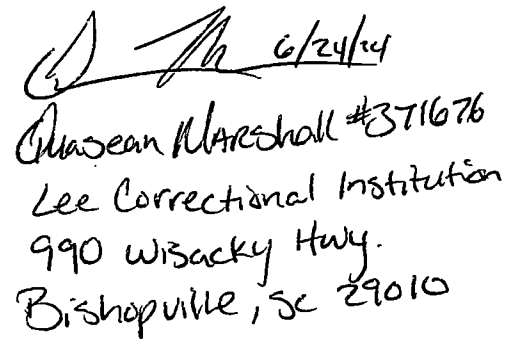 6/24/24
Quasean Marshall #371676
Lee Correctional Institution
990 Wisacky Hwy.
Bishopville, SC 29010